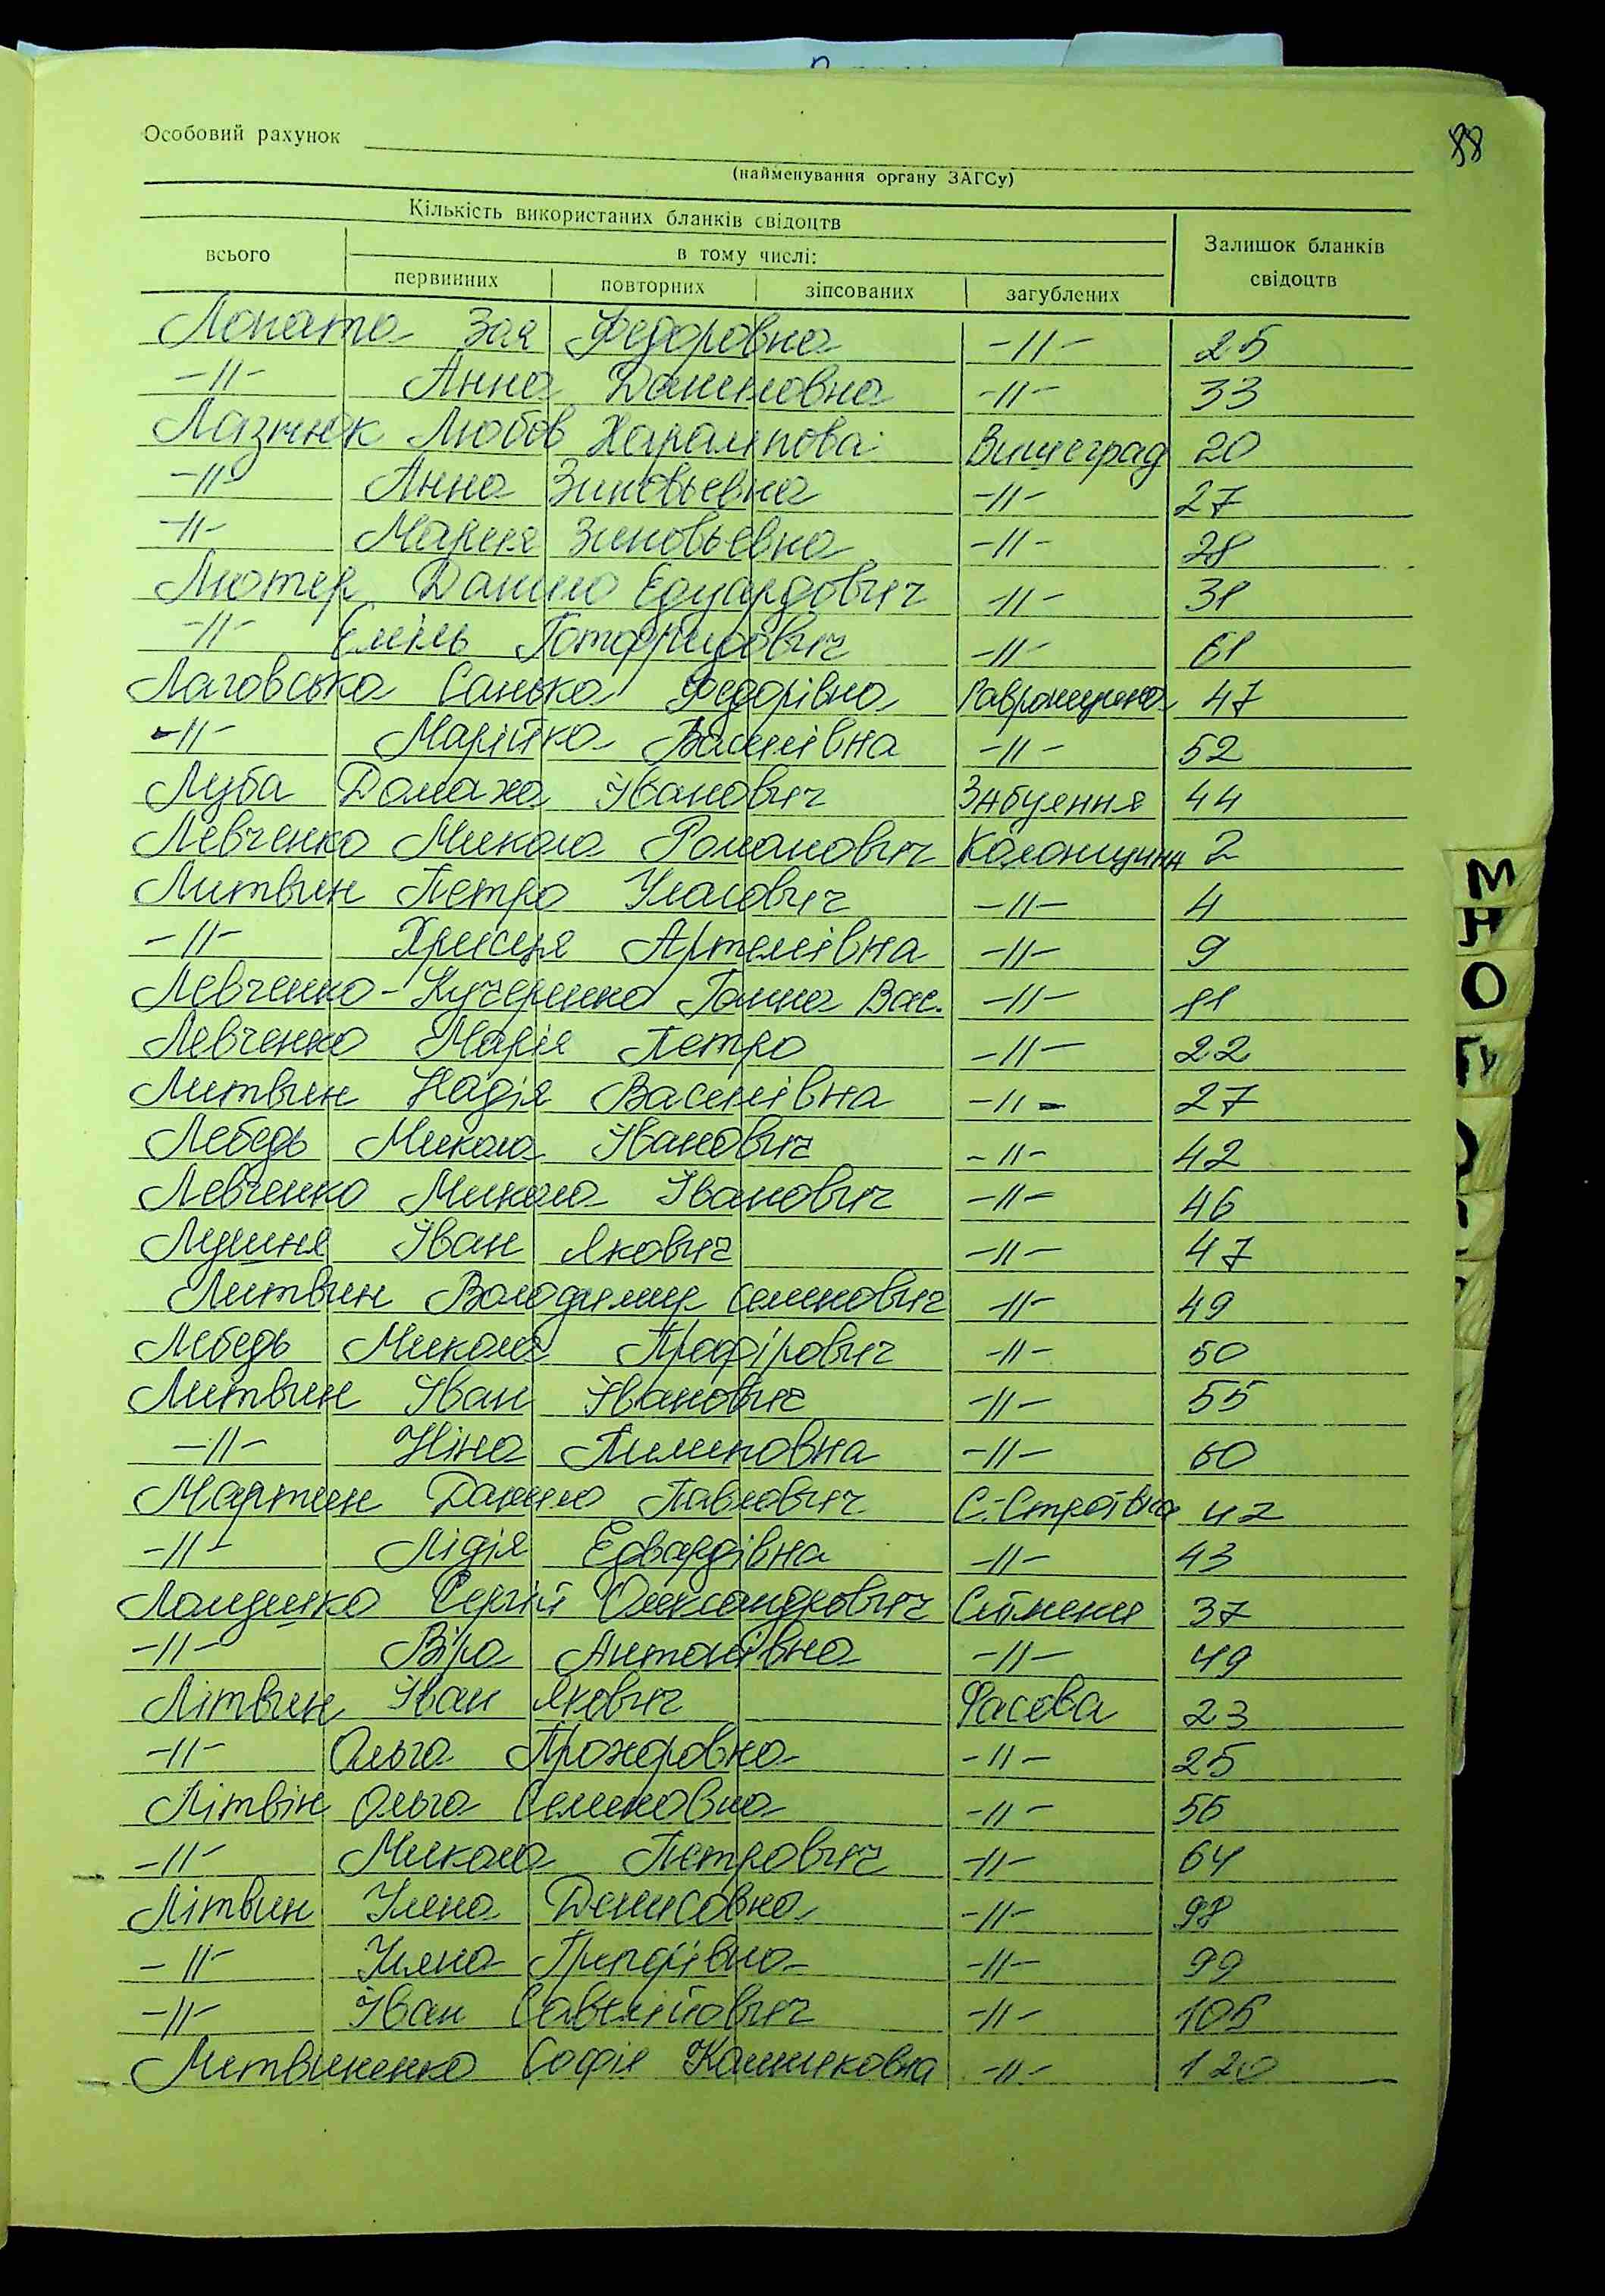 88
Особовий рахунок
(найменування органу ЗАГСу)
Кількість використаних бланків свідоцтв
всього
в тому числі:
Залишок бланків свідоцтв
первинних повторних зіпсованих загублених
Лопата Зоя Федоровна -//- 25
-//- Анна Даниловна -//- 33
Лазнюк Любов Харлампова Вишеград 20
-//- Анна Зиновьевна -//- 27
-//- Мария Зиновьевна -//- 28
Лютер Данило Едуардович -//- 31
-//- Еміль Готфридович -//- 61
Лаговська Санька Федорівна Гавронщина 47
-//- Марійка Василівна -//- 52
Луба Домаха Іванович 44
Левченко Микола Романович Колонщина 2
Литвин Петро Уласович -//- 4
-//- Христя Артемівна -//- 9
Левченко-Кучеренко Ганна Вас. -//- 11
Левченко Марія Петро -//- 22
Литвин Надія Василівна -//- 27
Лебедь Микола Іванович -//- 42
Левченко Микола Іванович -//- 46
Іван Якович -//- 47
Литвин Володимир Семенович -//- 49
Лебедь Микола -//- 50
Литвин Іван Іванович -//- 55
-//- Ніна Пилиповна -//- 60
Мартин Данило Павлович С-Строївка 42
-//- Лідія Едвардівна -//- 43
Лощенко Сергій Олександрович Ситняки 37
-//- Віра Антонівна -//- 49
Літвин Іван Якович Фасова 23
-//- Ольга Прохоровна -//- 25
Літвін Ольга Семеновна -//- 56
-//- Микола Петрович -//- 64
Літвин Улена Денисовна -//- 98
-//- Уляна -//- 99
-//- Іван Савелійович -//- 105
Литвиненко Софія -//- 120
М
Н
О